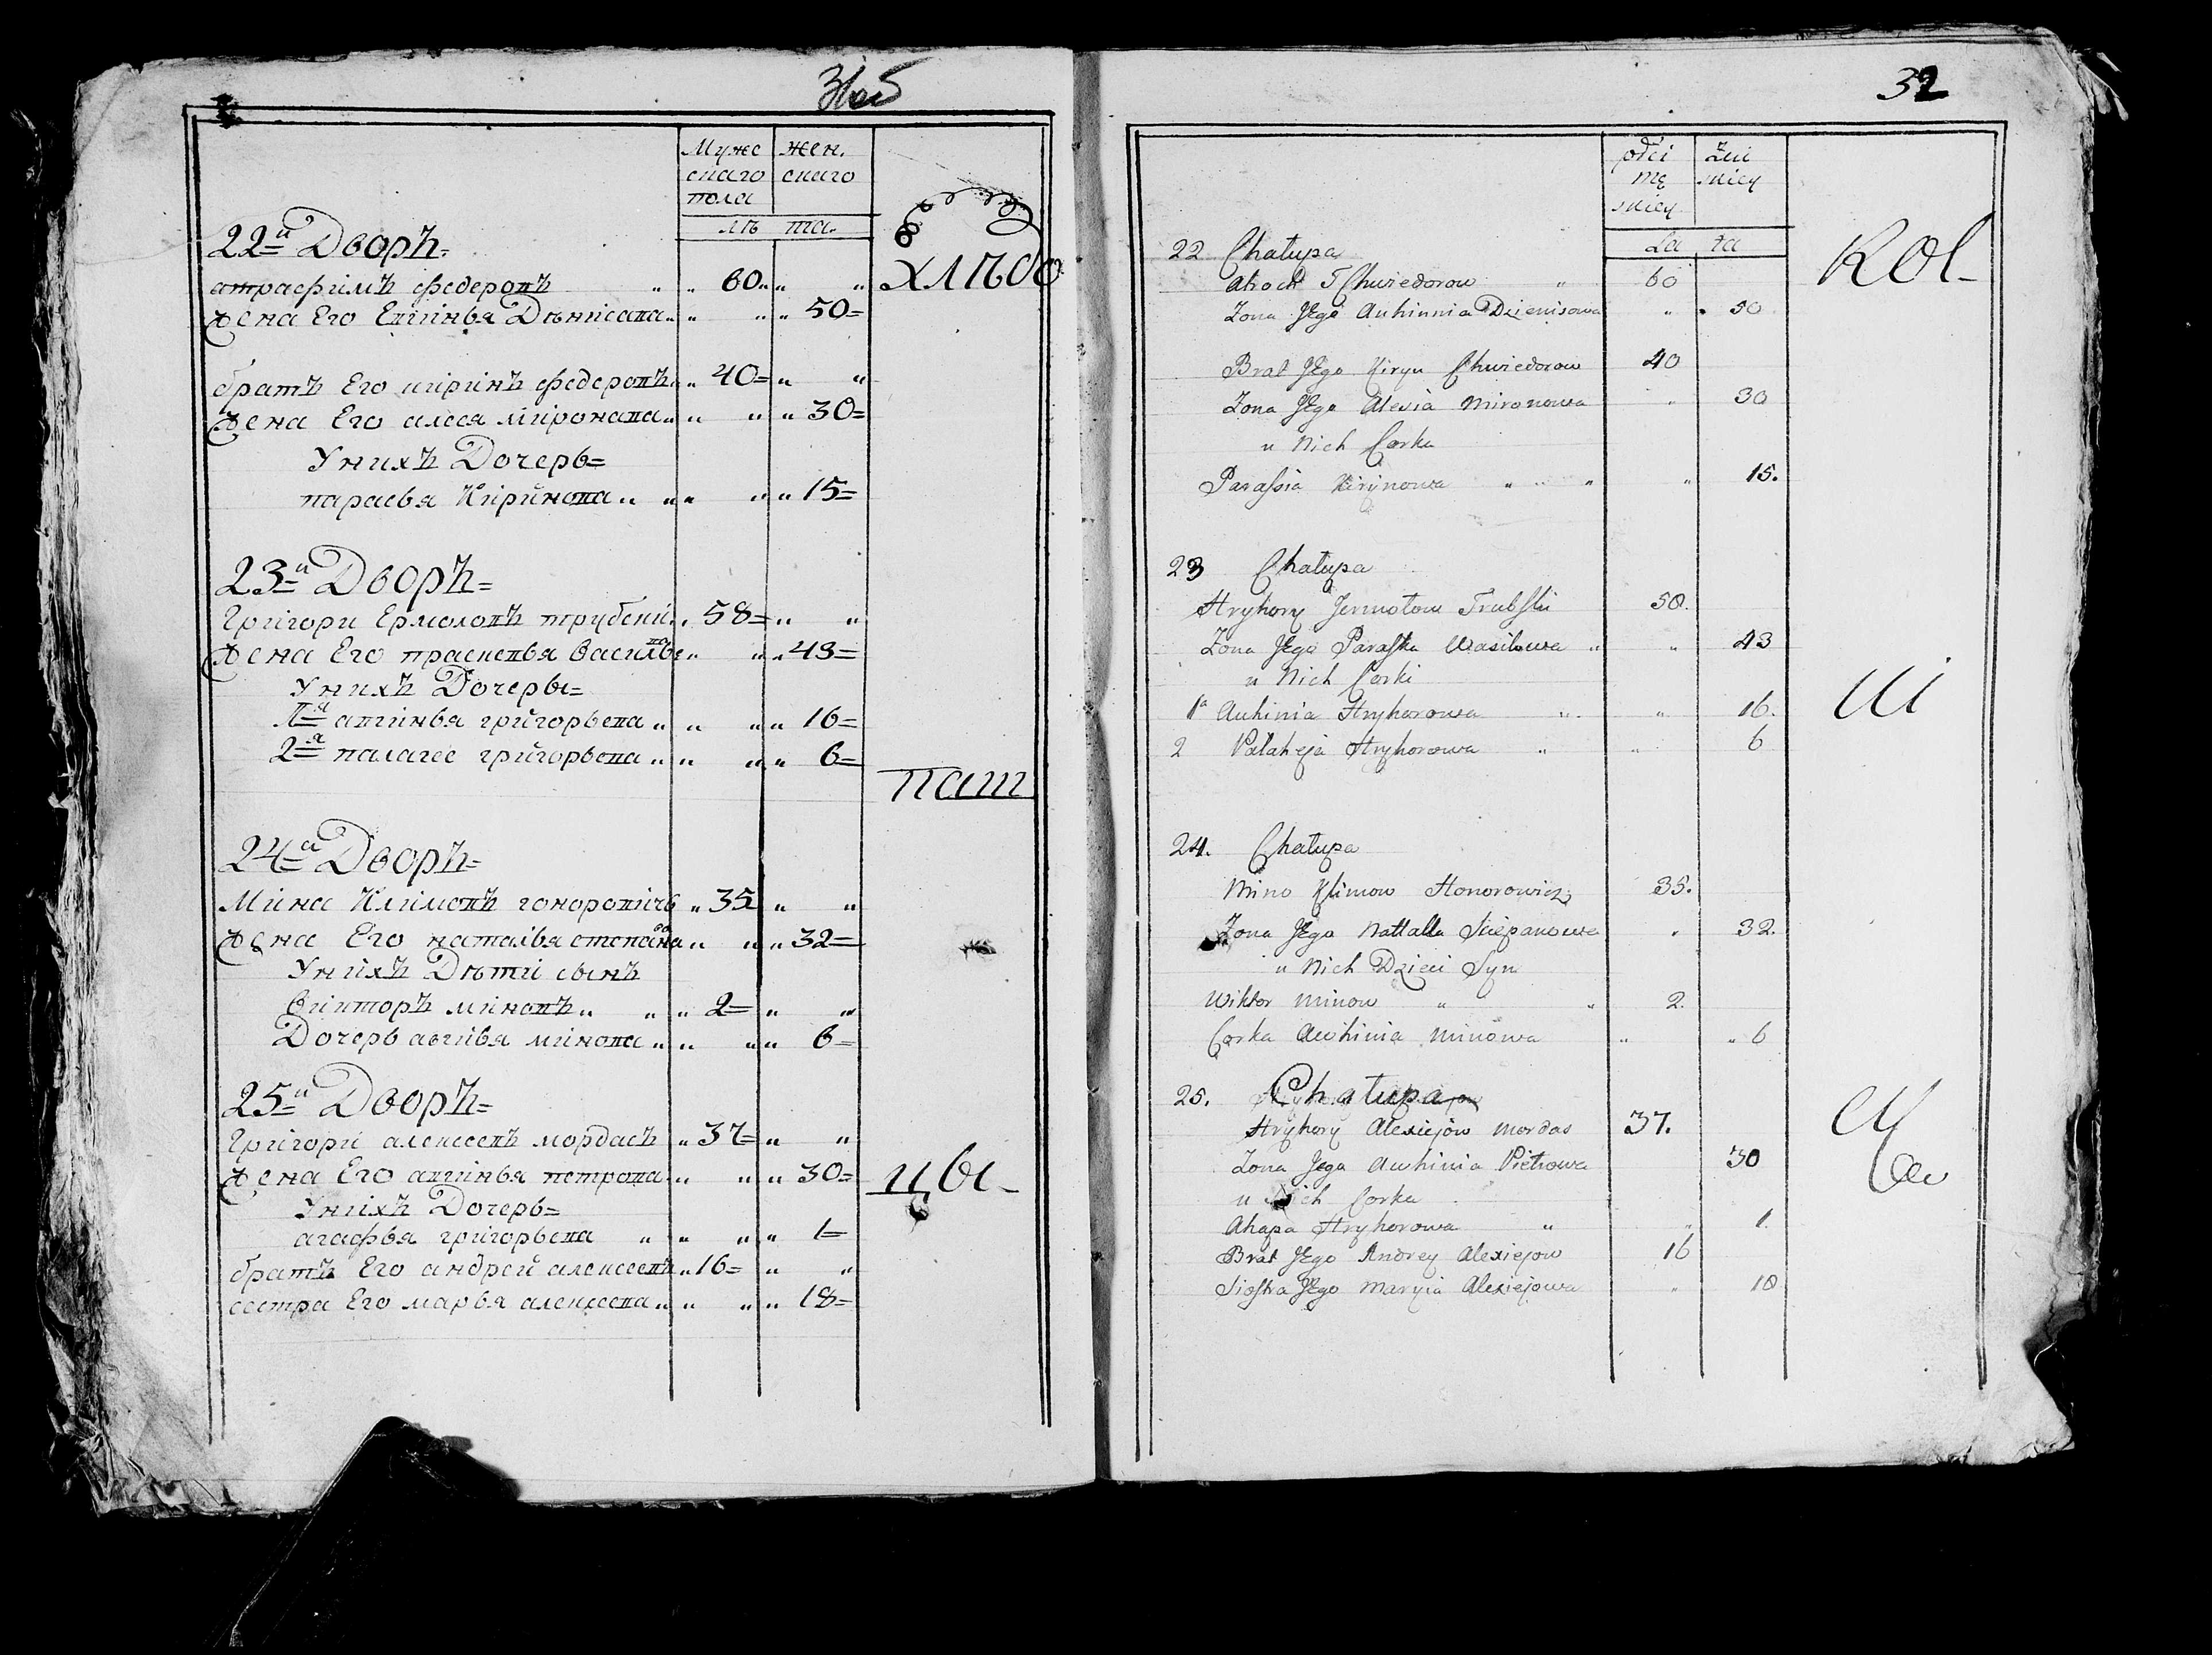 31об
Муже жен.
скаго скаго
пола
лѣ та.
22й Дворъ=
атрасфимъ федеровъ " " 60 " " "
Жена Его Евгинья Дѣнисава " " " " 50=
братъ Его киринъ федоровъ " " 40= " "
Жена Его алеся миронава " " " " 30=
Унихъ Дочерь=
парасья Киринова " " " " " 15=
23й Дворъ=
Григори Ермоловъ трубски " 58= " "
Жена Его прасковья Василье ва " " " 43=
Унихъ Дочеры=
1я авгинья григорьева " " " " 16=
2я палагее григорьева " " " " 6=
24й Дворъ=
Мина Климовъ гоноровичь " 35 " "
Жена Его наталья степана ва " " " 32=
Унихъ Дѣти сынъ
Викторъ миновъ " " " 2= " "
Дочерь авгивя минова " " " " 6=
25й Дворъ=
Григори алексеевъ мордасъ " 37= " "
Жена Его авгинья петрова " " " 30=
Унихъ Дочерь=
агафья григорьева " " " " 1=
братъ Его андрей алексеевъ " 16= " "
сестра Его марья алексеева " " " " 18=
хлѣбо
паш
цы
32
płci żeń
mę skiey
skiey
La ta
22 Chałupa
Chwiedorow " 60
Zona Jego Auhinnia Dzienisowa " " 50
Brat Jego Kiryn Chwiedorow 40
Zona Jego Alexia Mironowa " 30
u Nich Corka
Parassia Kirynowa " " " " 15.
23 Chałupa
Hryhory Jermołow Trubski 58.
Zona Jego Paraska Wasilowa " " 43
u Nich Corki
1a Auhinia Hryhorowa " " 16.
2 Pałaheja Hryhorowa " " 6
24. Chałupa
Mino Klimow Honorowicz 35.
Zona Jego Nattalla Sciepanowa " 32.
u Nich Dzieci Syn
Wiktor Minow " " 2.
Corka Awhinia Minowa " " 6
25. Chałupa
Hryhory Alexiejow Mordas 37.
Zona Jego Awhinia Pietrowa 30
u Nich Corka
Ahapa Hryhorowa " " 1.
Brat Jego Andrey Alexiejow 16
Siostra Jego Maryia Alexiejowa " 18
Kol-